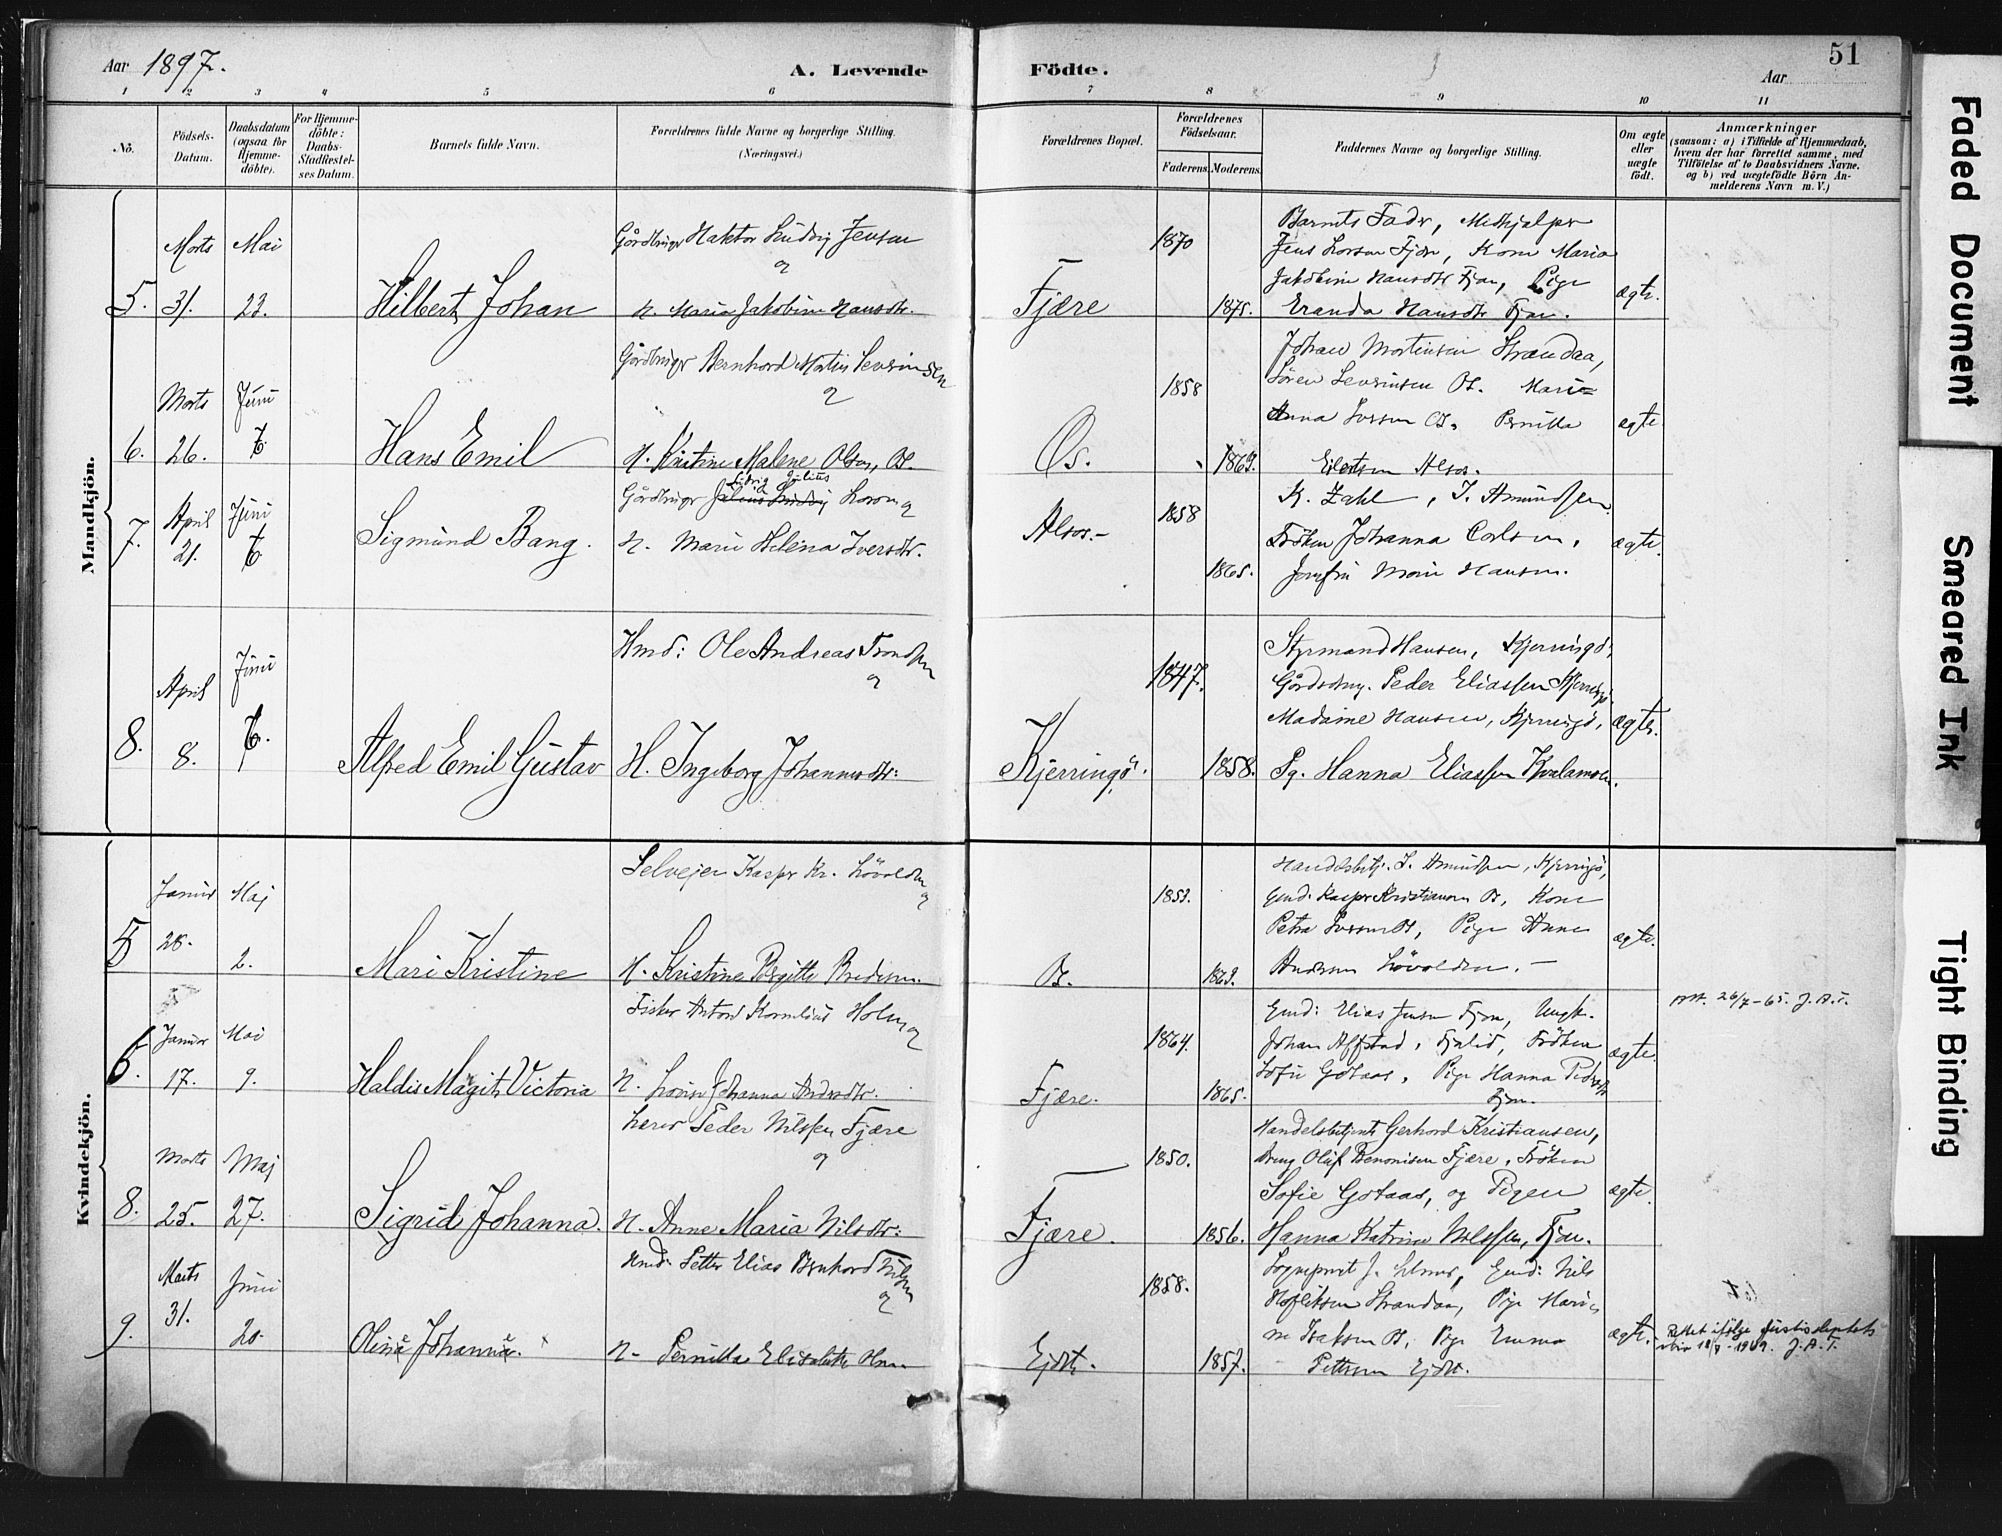 Aar 1897.
A. Levende
Födte.
Aar
51
1 2 3 4 5 6 7 8 9 10 11
Nö.
Födsels-
Datum.
Daabsdatum
(ogsaa for
Hjemme-
döbte).
For Hjemme-
döbte:
Daabs-
Stadfæstel-
ses Datum.
Barnets fulde Navn.
Forældrenes fulde Navne og borgerlige Stilling.
(Næringsvei.)
Forældrenes Bopæl.
Forældrenes
Födselsaar.
Faderens.
Moderens.
Faddernes Navne og borgerlige Stilling.
Om ægte
eller
uægte
födt.
Anmærkninger
(saasom: a) i Tilfælde af Hjemmedaab,
hvem der har forrettet samme, med
Tilföielse af to Daabsvidners Navne.
og b) ved uægtefödte Börn An-
melderens Navn m. V.)
Mandkjön.
5.
Marts
31.
Mai
23.
Hilbert Johan
Gårdbruger Ludvig Jensen
og
H. Maria Jakobine Hansdtr.
Fjære
1870
1875.
Barnets Fader, Medhjælper
Jens Larsen Fjære, Kone Maria
Jakobine Hansdtr Fjære, Pige
Hansdtr Fjære.
ægte.
6.
Marts
26.
Juni
7.
Hans Emil
Gårdbruger Bernhard Martin Sevrinsen
og
H. Kristine Malene Olsen, Os.
Os.
1858
1863.
Johan Mortensen Strandaa,
Sören Sevrinsen Os. Marie
Anna Iversen Os. Pernilla
Eilertsen Alsos.
ægte
7.
April
21.
Juni
7.
Sigmund Bang.
Ludvig Julius
Gårdbruger Julius Ludvig Larsen og
H. Marie Helena Iversdtr.
Alsos.-
1858
1865.
K. Zahl, J. Amundsen
Fröken Johanna Carlsen,
Jomfru Marie Hansen.
ægte.
8.
April
8.
Juni
7.
Alfred Emil Gustav
Hmd: Ole Andreas Trondsen
og
H. Ingeborg Johannesdtr:
Kjerringö.
1847.
1858.
Styrmand Hansen, Kjerringö,
Peder Eliassen Kjerringö
Madame Hansen, Kjerringö,
Pg. Hanna Eliassen
ægte.
Kvindekjön.
5
Januar
28.
Maj
2.
Mari Kristine
Selvejer Kaspr Kr. Lövolden
og
H. Kristine Birgitte
Os.
1853.
1863.
Handelsbetj. J. Amundsen, Kjerringö,
Gmd: Kaspr Kristiansen Os, Kone
Petra Iversen Os, Pige Anne
Andersen Lövolden.-
ægte.
6.
Januar
17.
Mai
9.
Haldis Magith Victoria
Fisker Anton Kornelius Holm og
H. Lovise Johanna Andersdtr.
Fjære.
1864.
1865.
Gmd: Elias Jensen Fjære, Ungk.
Johan Affstad, Fjelid, Fröken
Sofie Gotaas, Pige Hanna Pedersen
Fjære.
ægte.
26/7-65. J.A.T.
8.
Marts
25.
Maj
27.
Sigrid Johanna.
Lærer Peder Nilssen Fjære
og
H. Anne Maria Nilsdtr:
Fjære.
1850.
1856.
Handelsbetjent Gerhard Kristiansen,
Dreng Oluf Benonisen Fjære, Fröken
Sofie Gotaas, og Pigen
Hanna Katrine Nilssen, Fjære.
ægte.
9.
Marts
31.
Juni
20.
Olina Johanna.
Hmd: Petter Elias Bernhard Nilsen
og
H- Pernilla Elisabeth
Ejdet.
1858.
1857.
Sogneprest J. Gmd: Nils
Strandaa, Pige
Isaksen Os, Pige Emma
Pettersen Ejdet.
ægte.
Rettet ifölge justisdeptets
skriv 18/8-1969. J.A.T.
Faded Document
Smeared Ink
Tight Binding